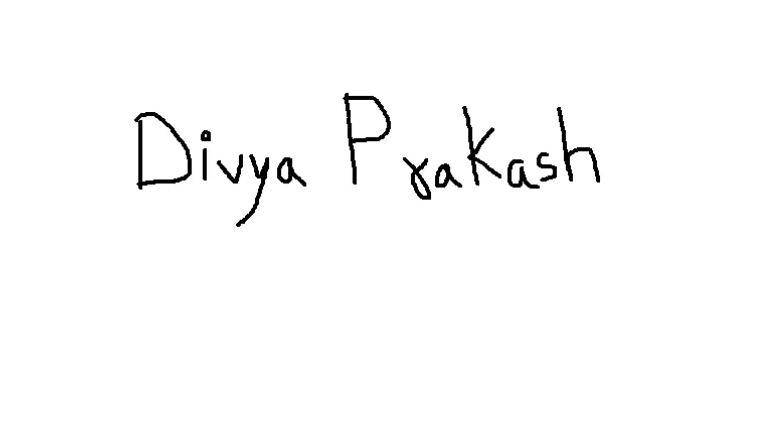 Divya Prakash